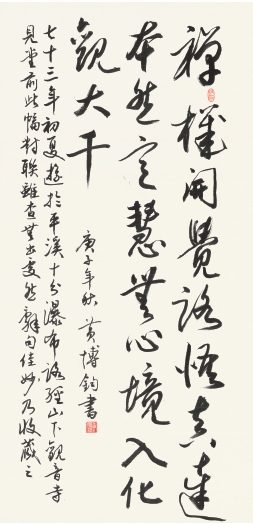 禪機開覺路悟真達
本然定慧無心境入化
觀大千
庚子年秋 黃博鈞書
七十三年初夏遊於平溪十分瀑布路經山下觀音寺
見堂前此幅對聯雖查無出處然辭句佳妙乃收藏之